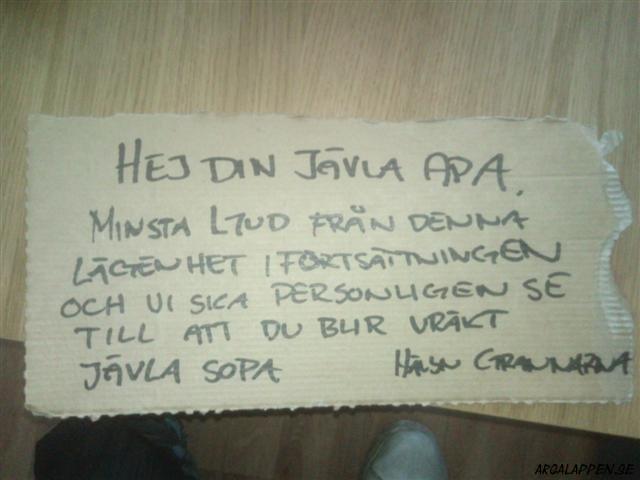 HEJ DIN JÄVLA APA.
MINSTA LJUD FRÅN DENNA
LÄGENHET I FORTSÄTTNINGEN
OCH VI SKA PERSONLIGEN SE
TILL ATT DU BLIR VRÄKT
JÄVLA SOPA HÄLSN GRANNARNA
ARGALAPPEN.SE